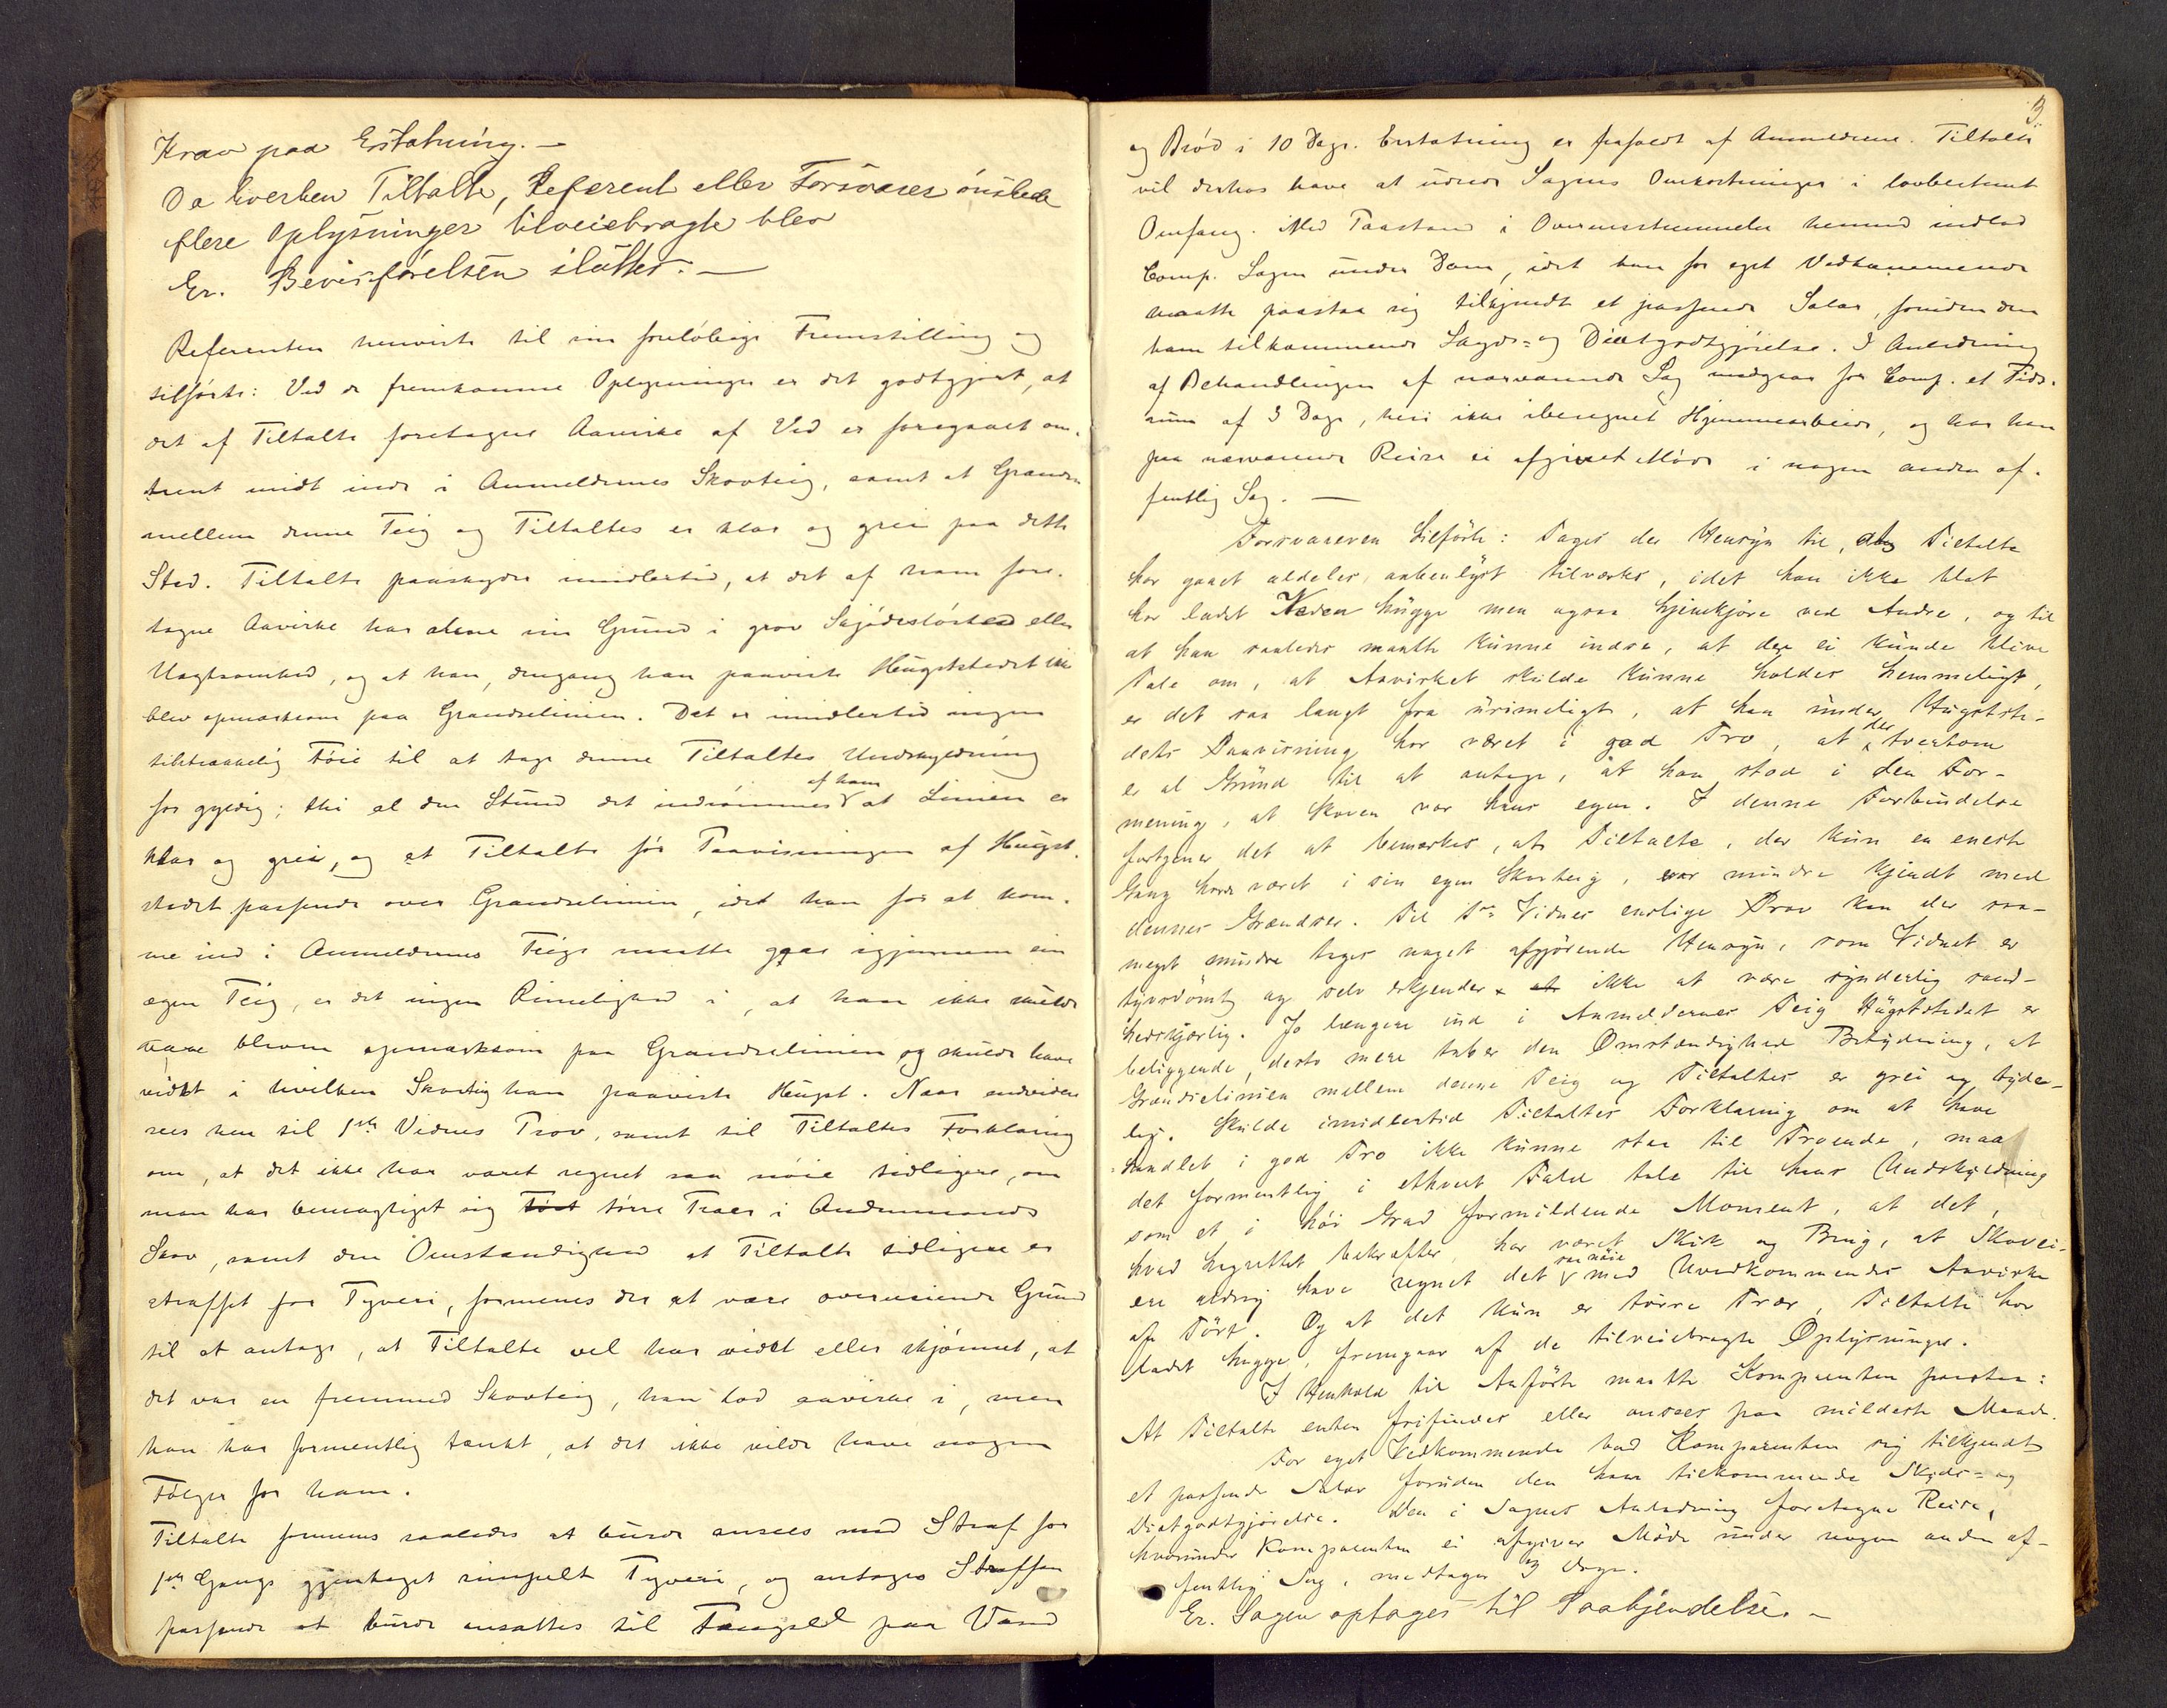 Krav paa Erstatning. —
Da hverken Tiltalte, Referent eller Forsvarer ønskede
flere Oplysninger tilveiebragte blev
Er. Bevisførelsen sluttet. —
Referenten henviste til sin foreløbige Fremstilling og
tilførte: Ved de fremkomne Oplysninger er det godtgjort, at
det af Tiltalte foretagne Aavirke af Ved er foregaaet om-
trent midt inde i Anmeldernes Skovteig, samt at Grændsen
mellem denne Teig og Tiltaltes er klar og grei paa dette
Sted. Tiltalte paaskyder imidlertid, at det af ham fore-
tagne Aavirke har alene sin Grund i grov Skjødesløshed eller
Uagtsomhed, og at han, dengang han paaviste Hugststedet ikke
blev opmærksom paa Grændselinien. Det er imidlertid ingen
tilstrækkelig Føie til at tage denne Tiltaltes Undskyldning
for gyldig; thi al den Stund det indrømmes af ham at Linien er
klar og grei, og at Tiltalte før Paavisningen af Hugst-
stedet passerede over Grændselinien, idet han for at kom-
me ind i Anmeldernes Teig maatte gaa igjennem sin
egen Teig, er det ingen Rimelighed i, at han ikke skulde
være bleven opmærksom paa Grændselinien og skulde have
vidst i hvilken Skovteig han paaviste Hugst. Naar endvidere
sees hen til 1ste Vidnes Prov, samt til Tiltaltes Forklaring
om, at det ikke har været regnet saa nøie tidligere, om
man har bemægtiget sig tørre Træer i Andenmands
Skov, samt den Omstændighed at Tiltalte tidligere er
straffet for Tyveri, formenes der at være overveiende Grund
til at antage, at Tiltalte vel har vidst eller skjønnet, at
det var en fremmed Skovteig, han lod aavirke i, men
han har formentlig tænkt, at det ikke vilde have nogen
Følger for ham.
Tiltalte formenes saaledes at burde ansees med Straf for
1ste Gangs gjentaget simpelt Tyveri, og antages Straffen
passende at burde ansættes til Fængsel paa Vand
3
og Brød i 10 Dage. Erstatning er frafaldt af Anmelderne. Tiltalte
vil derhos have at udrede Sagens Omkostninger i lovbestemt
Omfang. Med Paastand i Overensstemmelse hermed indlod
Comp. Sagen under Dom, idet han for eget Vedkommende
maatte paastaa sig tilkjendt et passende Salar, foruden den
ham tilkommende Skyds- og Diætgodtgjørelse. I Anledning
af Behandlingen af nærværende Sag medgaar for Comp. et Tids-
rum af 3 Dage, heri ikke iberegnet Hjemmearbeide, og har han
paa nærværende Reise ei afgivet Møde i nogen anden of-
fentlig Sag. —
Forsvareren tilførte: Tages der Hensyn til, at Tiltalte
har gaaet aldeles aabenlyst tilværks, idet han ikke blot
har ladet Veden hugge men ogsaa hjemkjøre ved Andre, og til
at han saaledes maatte kunne indse, at der ei kunde blive
Tale om, at Aavirket skulde kunne holdes hemmeligt,
er det saa langt fra urimeligt, at han under Hugstste-
dets Paavisning har været i god Tro, at der tvertom
er al Grund til at antage, at han stod i den For-
mening, at Skoven var hans egen. I denne Forbindelse
fortjener det at bemærkes, at Tiltalte, der kun en eneste
Gang havde været i sin egen Skovteig, var mindre kjendt med
dennes Grændser. Til 1ste Vidnes enslige Prov kan der saa-
meget mindre tages noget afgjørende Hensyn, som Vidnet er
tyvsdømt og selv erkjender ikke at være synderlig sand-
hedskjærlig. Jo længere ind i Anmeldernes Teig Hugststedet er
beliggende, desto mere taber den Omstændighed Betydning, at
Grændselinien mellem denne Teig og Tiltaltes er grei og tyde-
lig. Skulde imidlertid Tiltaltes Forklaring om at have
handlet i god Tro ikke kunne staa til Troende, maa
det formentlig i ethvert Fald tale til hans Undskyldning
som et i høi Grad formildende Moment, at det,
hvad Lagrettet bekræfter, har været Skik og Brug, at Skovei-
ere aldrig have regnet det saa nøie med Uvedkommendes Aavirke
af Tørt. Og at det kun er tørre Trær, Tiltalte har
ladet hugge, fremgaar af de tilveiebragte Oplysninger.
I Henhold til Anførte maatte Komparenten paastaa:
At Tiltalte enten frifindes eller ansees paa mildeste Maade.
For eget Vedkommende bad Komparenten sig tilkjendt
et passende Salær foruden den ham tilkommende Skyds- og
Diætgodtgjørelse. Den i Sagens Anledning foretagne Reise,
hvorunder Komparenten ei afgiver Møde under nogen anden of-
fentlig Sag, medtager 3 Dage.
Er. Sagen optages til Paakjendelse. —